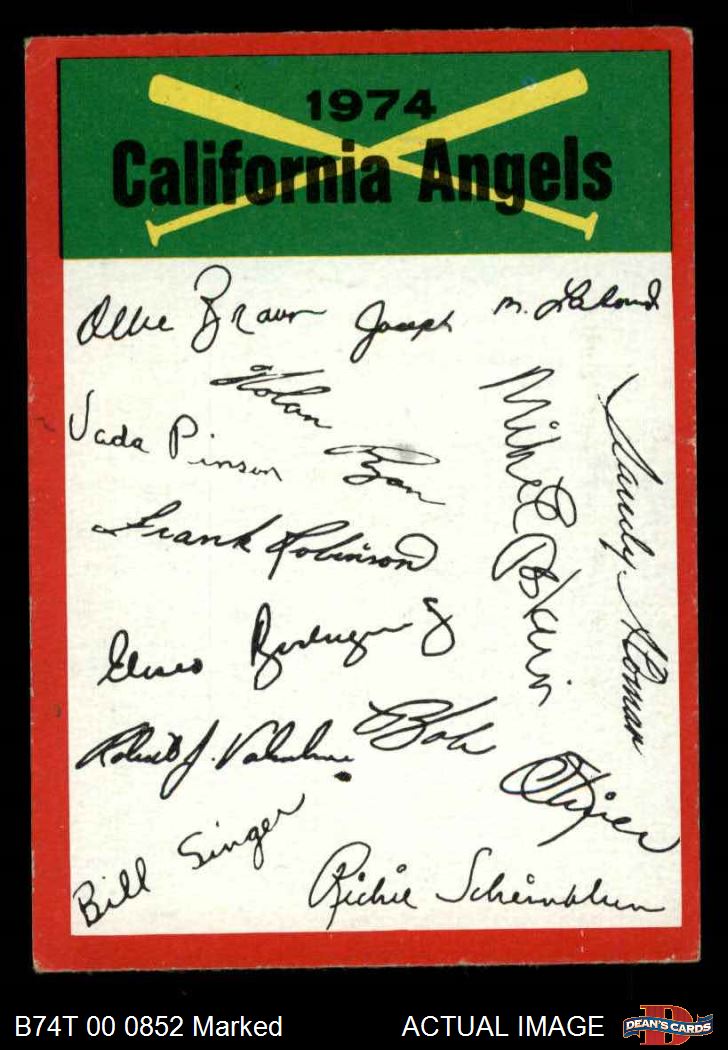 1974
California Angels
Ollie Brown
Joseph M. Lahoud
Nolan Ryan
Vada Pinson
Mike Epstein
Sandy Alomar
Frank Robinson
Eliseo Rodriguez
Robert J. Valentine
Bob Oliver
Bill Singer
Richie Scheinblum
B74T 00 0852 Marked
ACTUAL IMAGE
DEAN'S CARDS